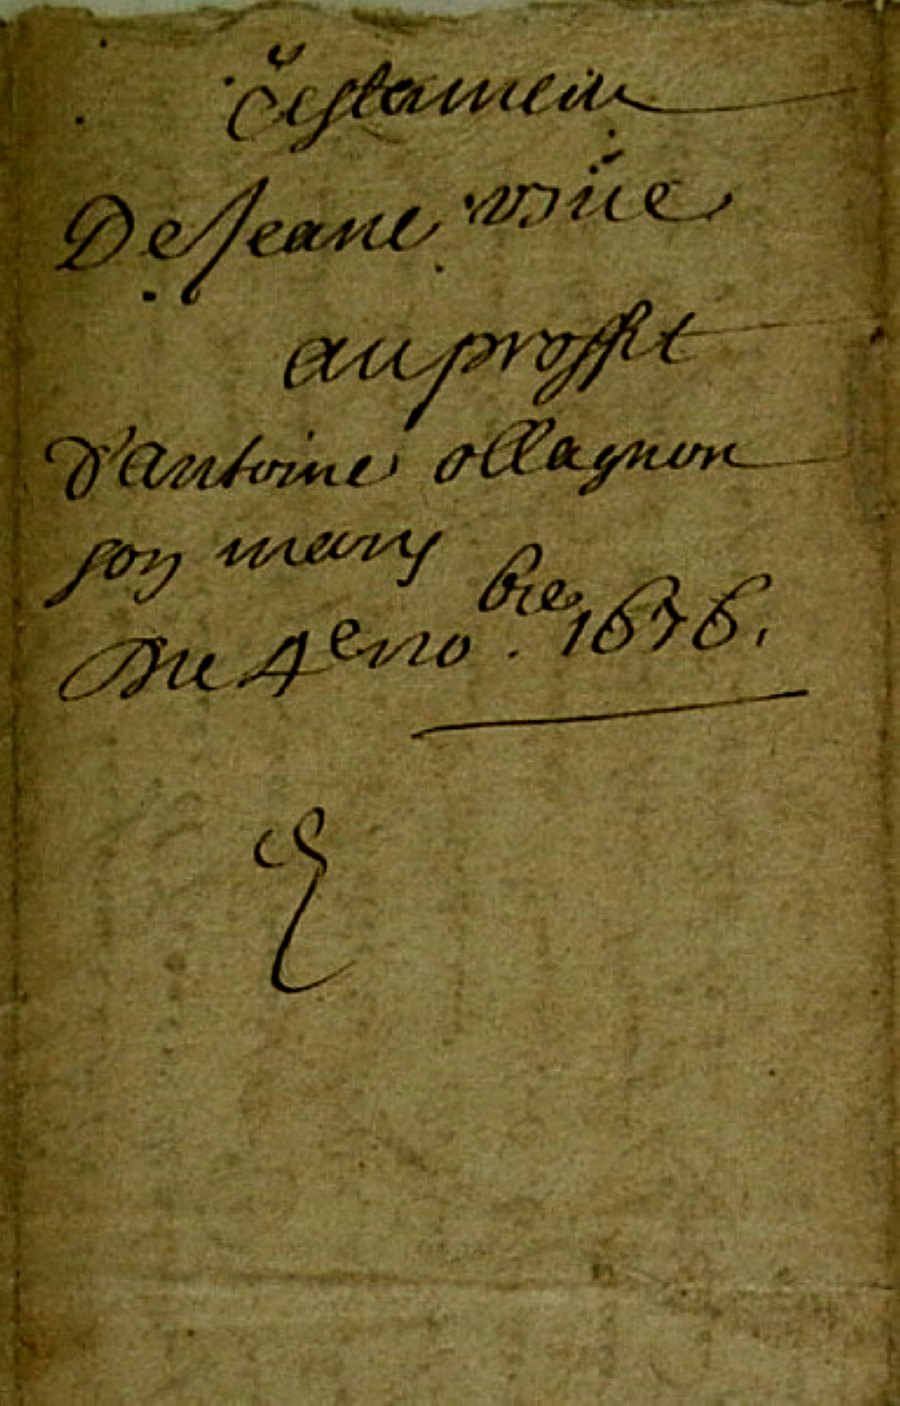 Testament
De Jeane
au proffit
d'Antoine ollagnon
son mary
Du 4e no.bre 1676.